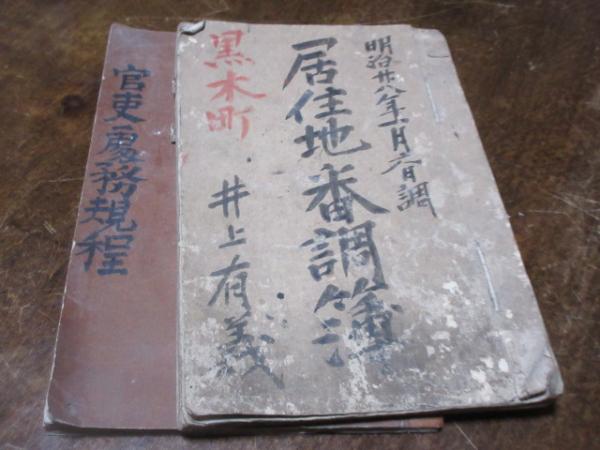 明治廿八年十一月六日調
居住地番調簿
黒木町
井上有義
官吏處務規程